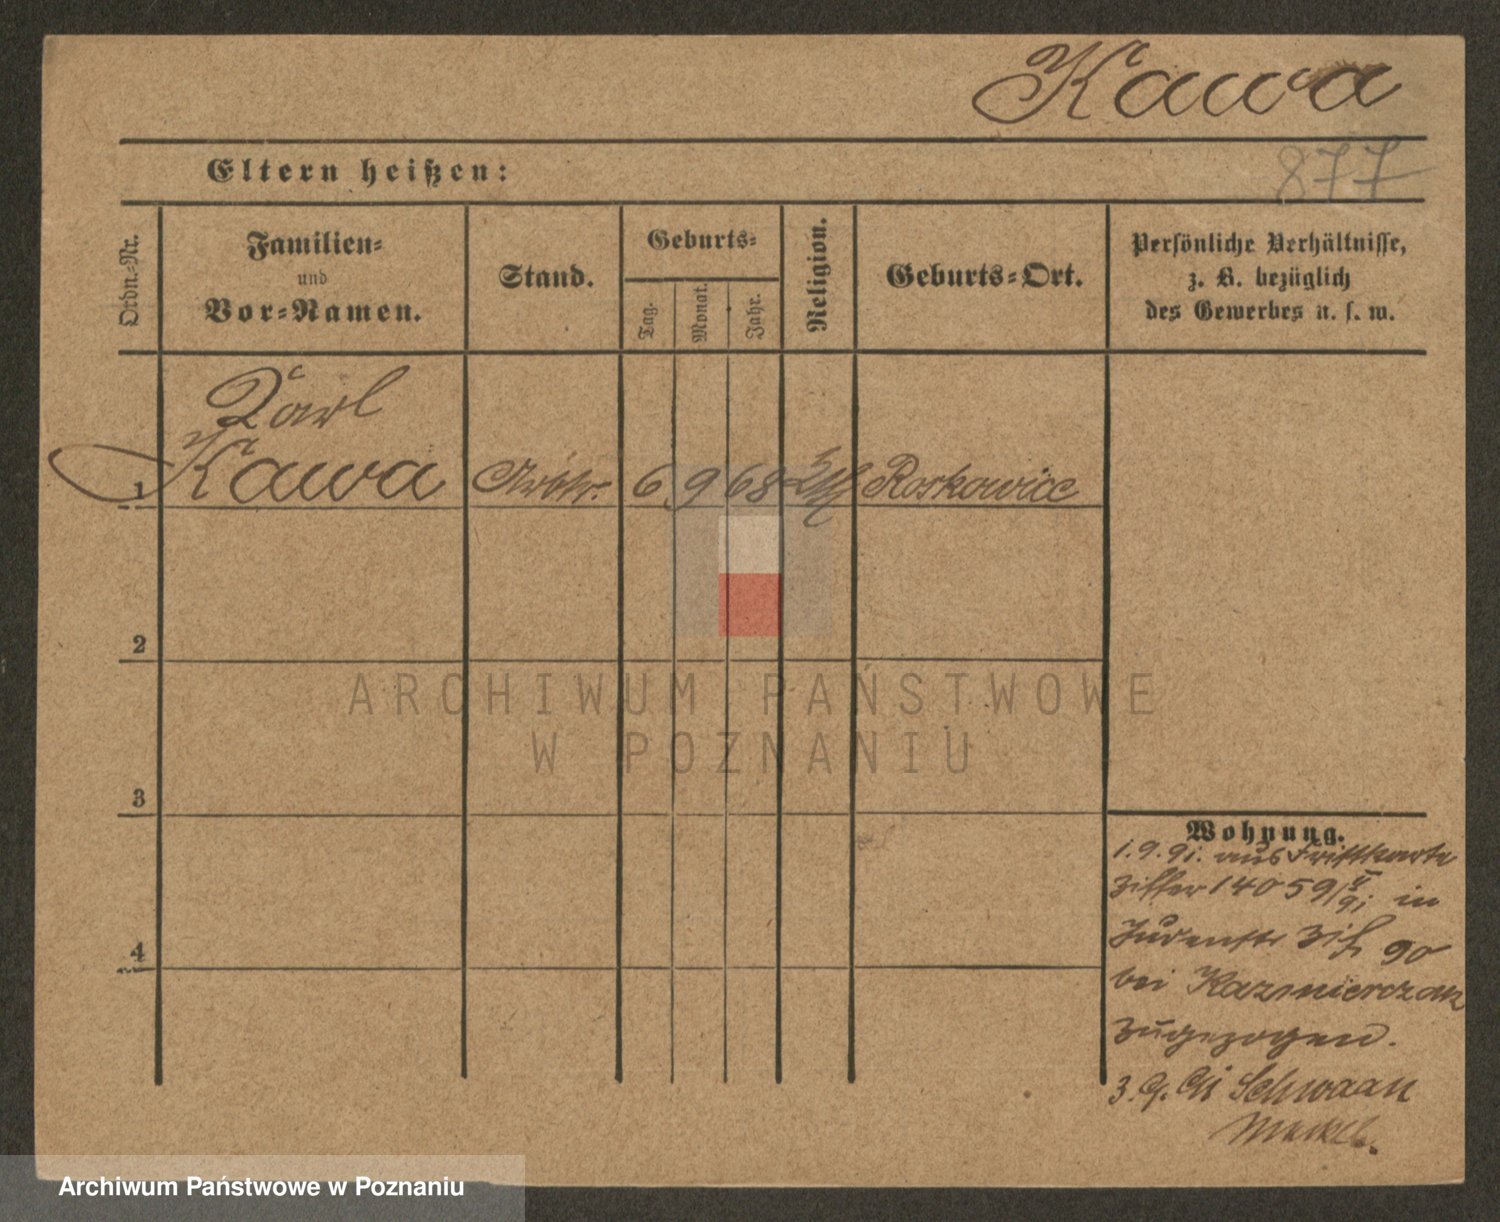 Kawa
877
Eltern heißen:
Ordn.-Nr.
Familien-
und
Vor-Namen.
Stand.
Geburts-
Tag.
Monat.
Jahr.
Religion.
Geburts-Ort.
Persönliche Verhältnisse,
z. B. bezüglich
des Gewerbes u. s. w.
Karl
1 Kawa Arbtr. 6 9 68 Roskowice
2
3
4
Wohnung.
1.9.91. aus Fristkarte
Ziffer 14059/91 in
Judenstr 90
bei Kazmierczak
zugezogen.
3.9.91 Schwaan
ARCHIWUM PAŃSTWOWE
W POZNANIU
Archiwum Państwowe w Poznaniu